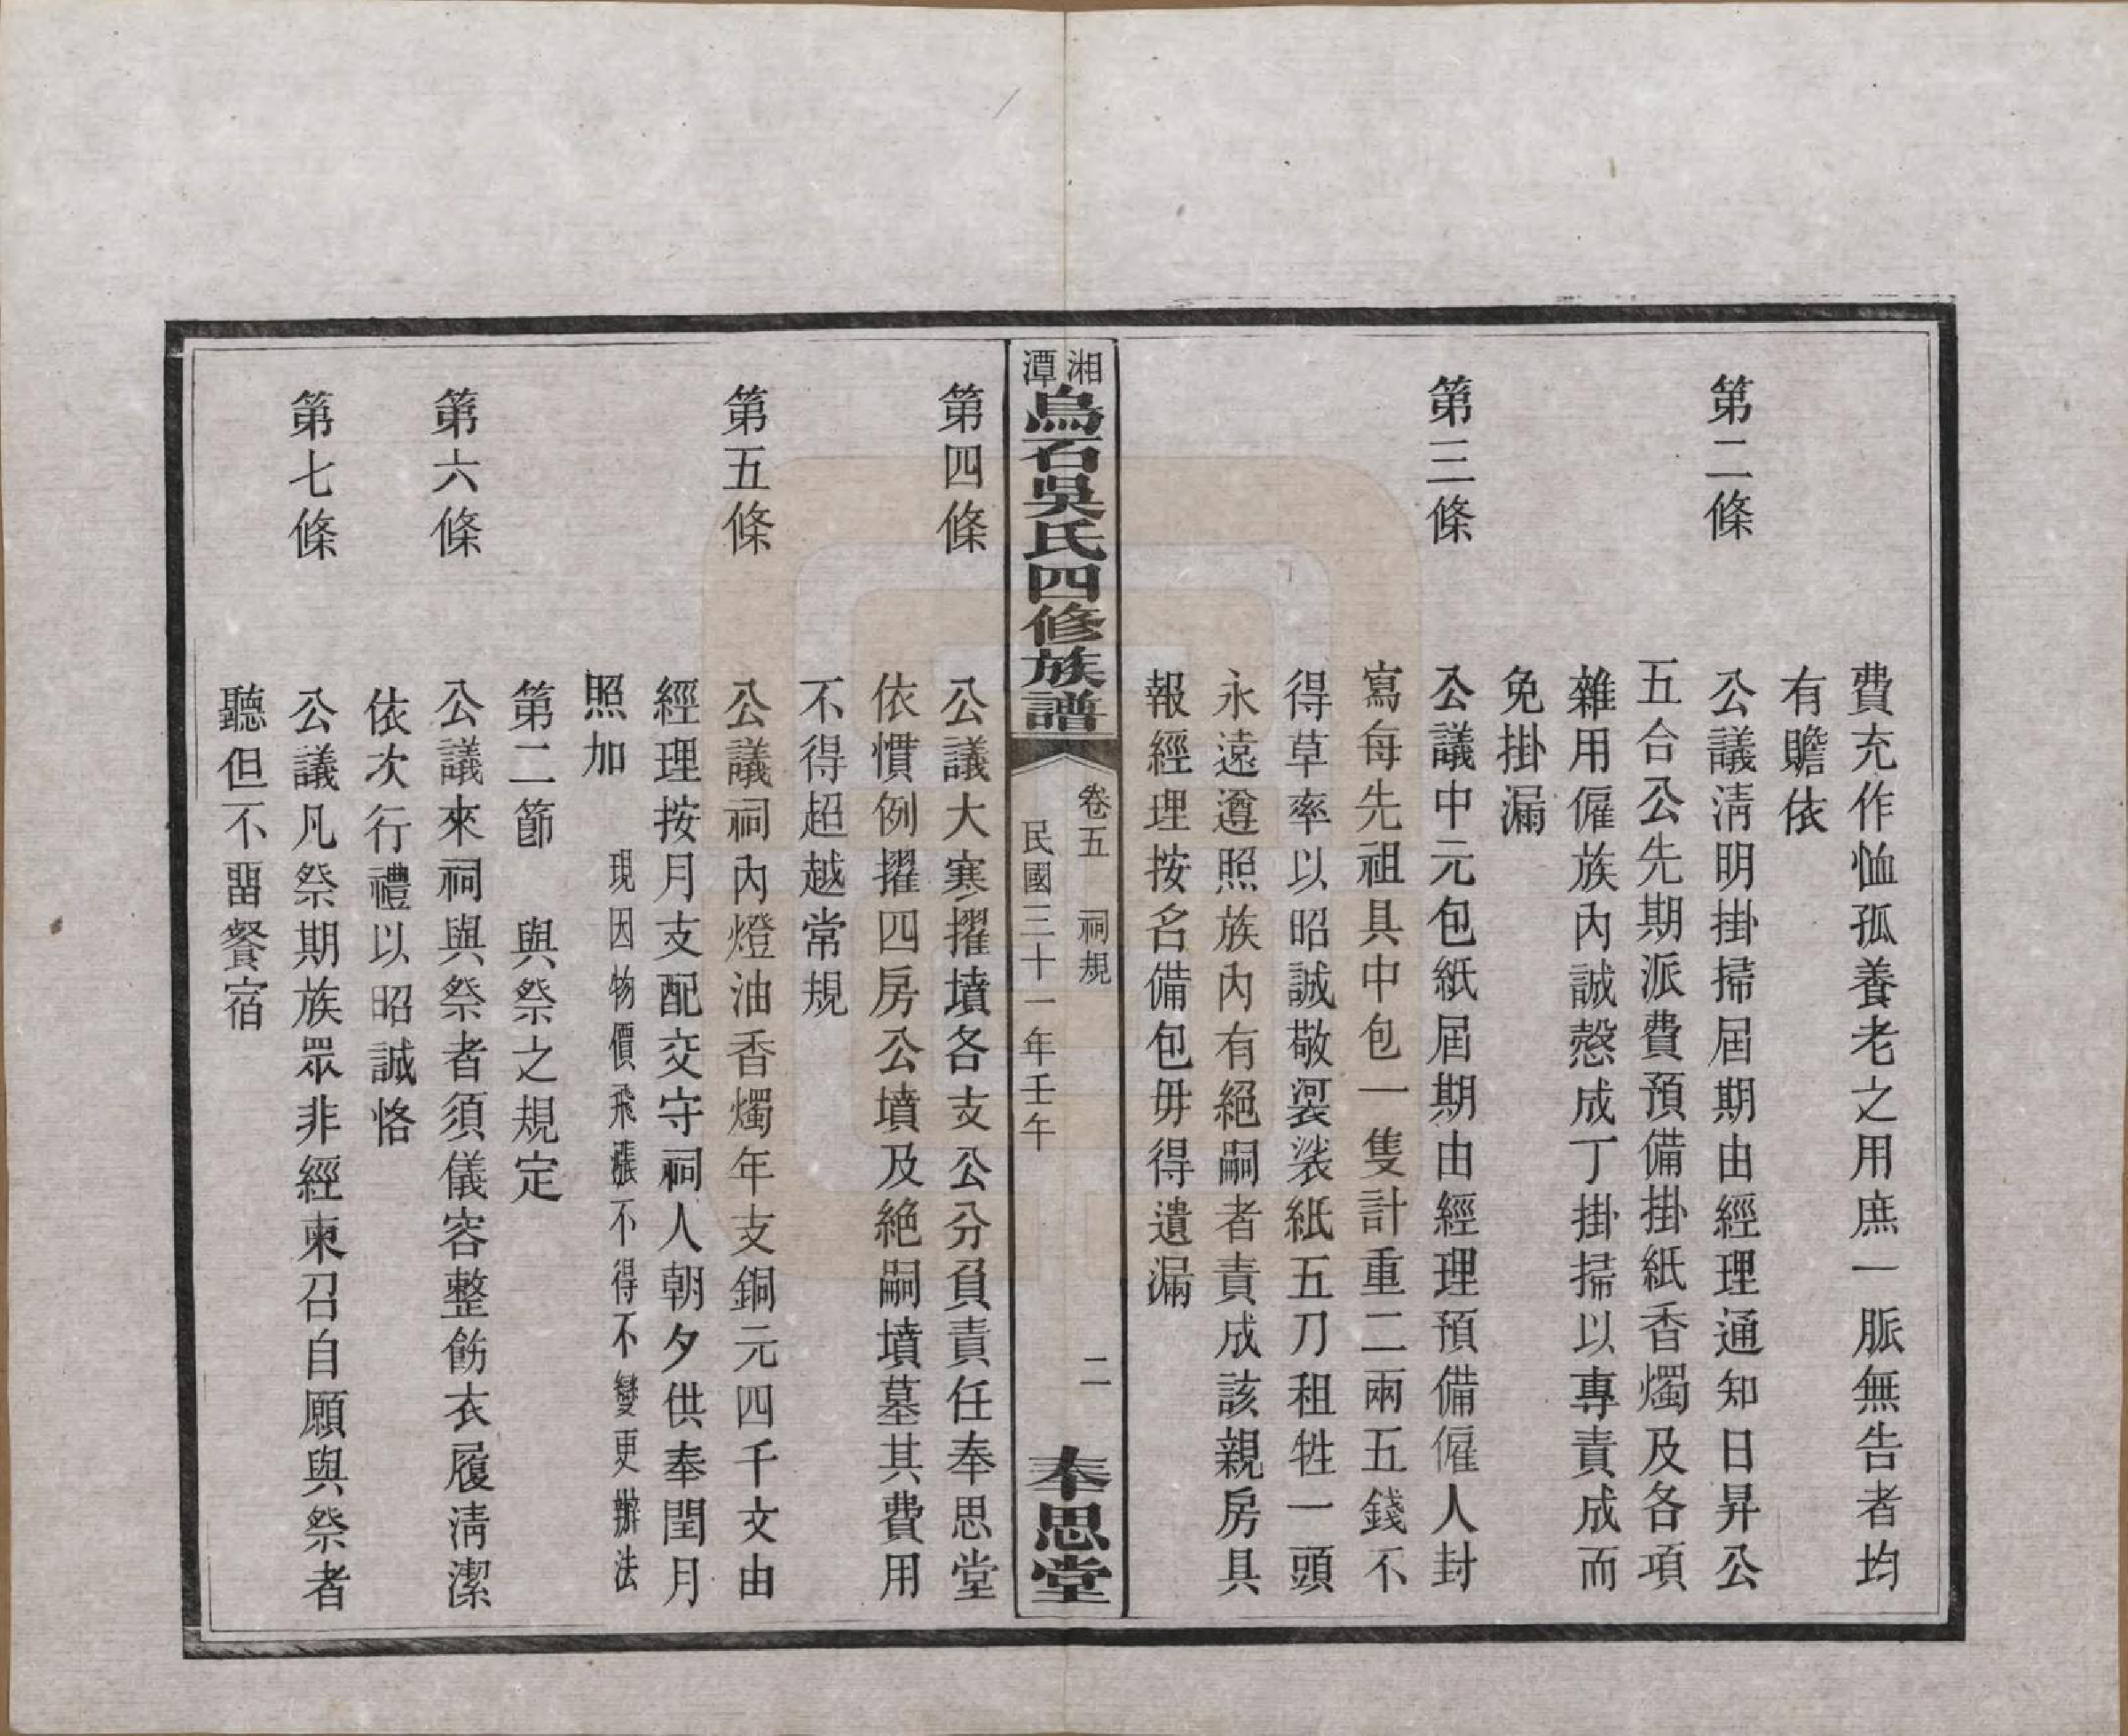 費充作恤孤養老之用庶一脈無告者均
有贍依
第二條　公議淸明掛掃屆期由經理通知日昇公
五合公先期派費預備掛紙香燭及各項
雜用僱族內誠慤成丁掛掃以專責成而
免掛漏
第三條　公議中元包紙屆期由經理預備僱人封
寫每先祖具中包一隻計重二兩五錢不
得草率以昭誠敬裝裟紙五刀租牲一頭
永遠遵照族內有絕嗣者責成該親房具
報經理按名備包毋得遺漏
湘潭烏石吳氏四修族譜
卷五　祠規　二
民國三十一年壬午
奉思堂
第四條　公議大寒擢墳各支公分負責任奉思堂
依慣例擢四房公墳及絕嗣墳墓其費用
不得超越常規
第五條　公議祠內燈油香燭年支銅元四千文由
經理按月支配交守祠人朝夕供奉閏月
照加　現因物價飛漲不得不變更辦法
第二節　與祭之規定
第六條　公議來祠與祭者須儀容整飭衣履淸潔
依次行禮以昭誠恪
第七條　公議凡祭期族眾非經柬召自願與祭者
聽但不畱餐宿